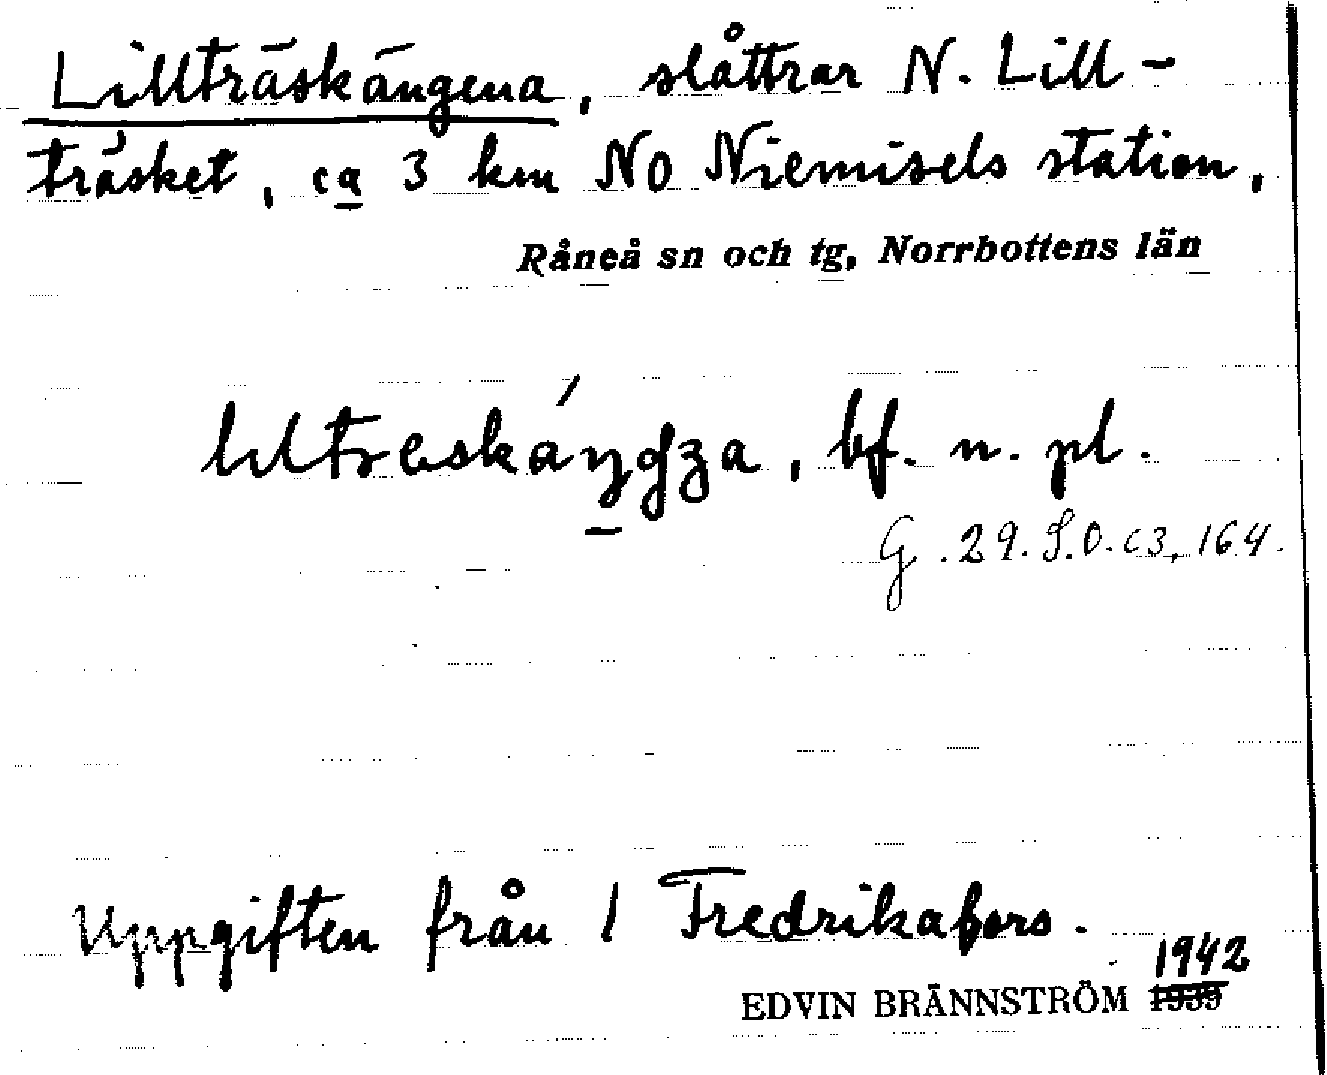 Lillträskängena, slåttrar N. Lill-
träsket, ca 3 km NO Niemisels station,
Råneå sn och tg, Norrbottens län
bf. n. pl.
G. 29. S.O. c3, 164.
Uppgiften från 1 Fredrikafors.
1942
EDVIN BRÄNNSTRÖM 1939